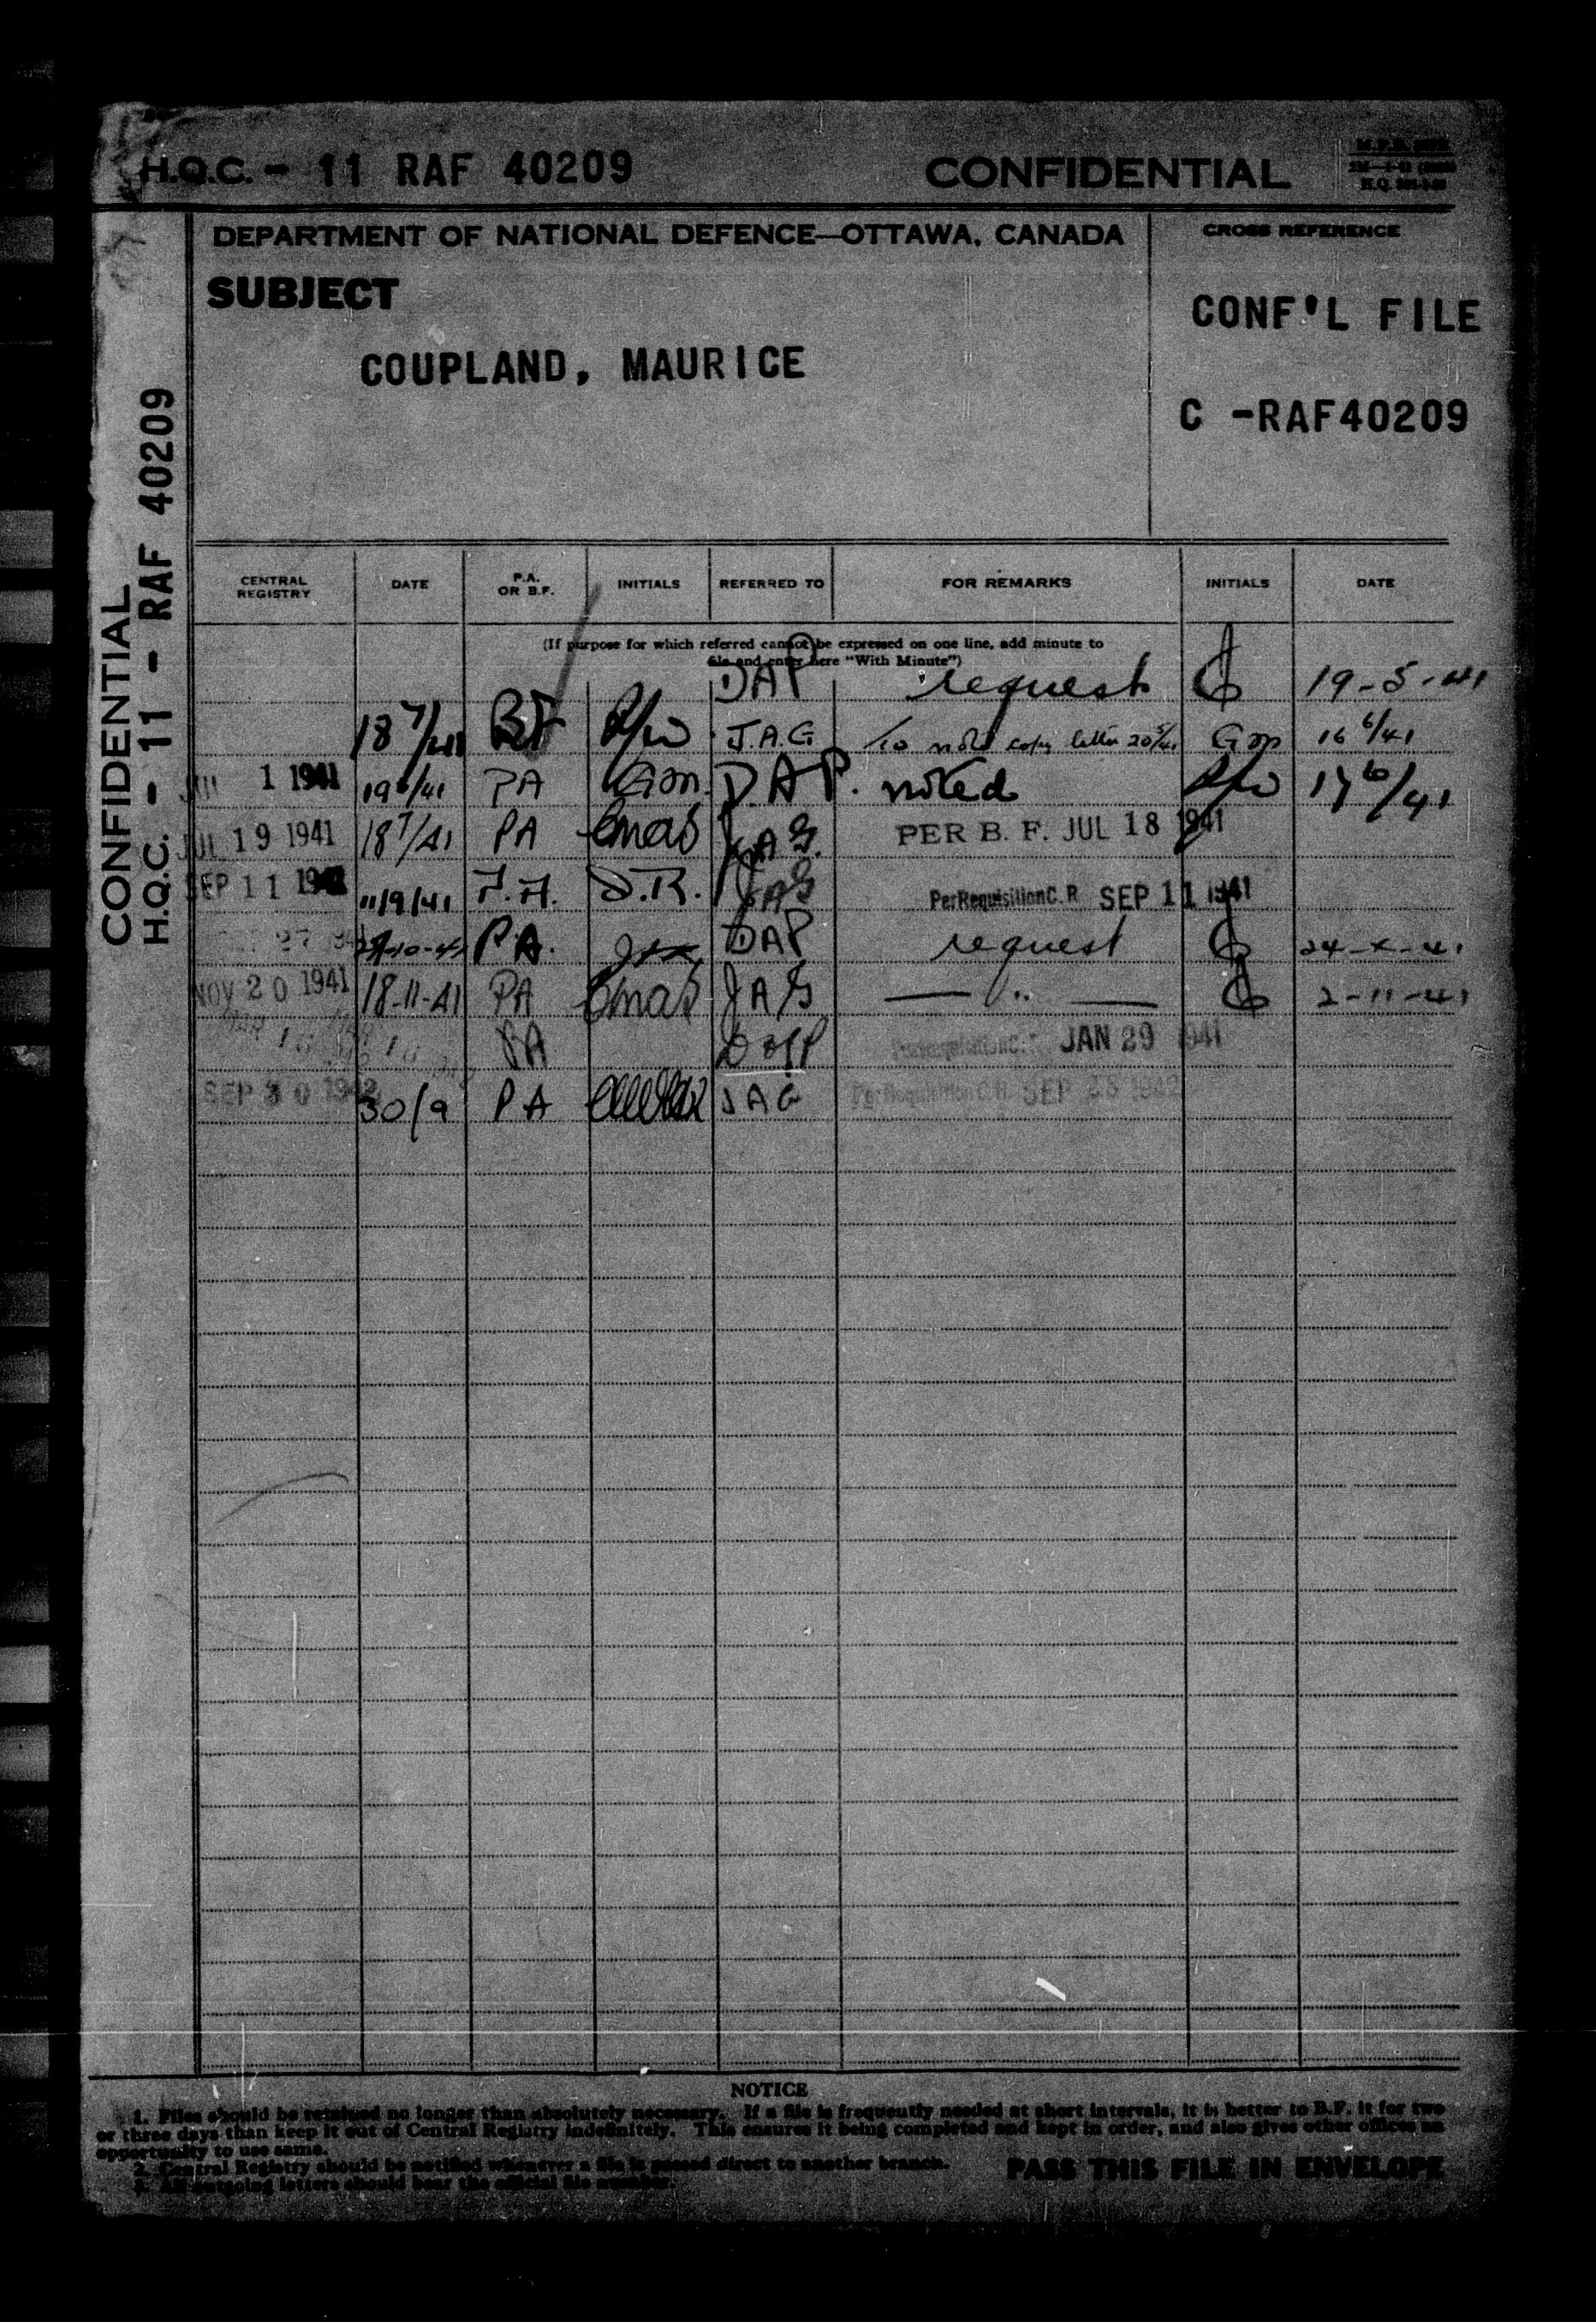 H.Q.C. - 11 RAF 40209 CONFIDENTIAL
DEPARTMENT OF NATIONAL DEFENCE—OTTAWA, CANADA CROSS REFERENCE
SUBJECT
CONF'L FILE
COUPLAND, MAURICE
C -RAF40209
CONFIDENTIAL
H.Q.C. - 11 - RAF 40209
CENTRAL REGISTRY DATE P.A. OR B.F. INITIALS REFERRED TO FOR REMARKS INITIALS DATE
(If purpose for which referred cannot be expressed on one line, add minute to
file and enter here "With Minute")
DAP request 19-5-41
18 7/41 BF J.A.G to note copy letter 20/5/41 16 6/41
1 1941 19 6/41 PA D.A.P. noted 17 6/41
JUL 19 1941 18 7/41 PA JAG. PER B. F. JUL 18 1941
SEP 11 11/9/41 D.R. JAG Per Requisition C. R. SEP 11 1941
27 P.A. DAP request 24-x-41
NOV 20 1941 18-11-41 PA JAG — " — 2-11-41
PA JAN 29 1941
SEP 30 1942 30/9 PA JAG Per Requisition C.R. SEP 1942
NOTICE
1. Files should be retained no longer than absolutely necessary. If a file is frequently needed at short intervals, it is better to B.F. it for two
or three days than keep it out of Central Registry indefinitely. This ensures it being completed and kept in order, and also gives other offices an
opportunity to use same.
2. Central Registry should be notified whenever a file is passed direct to another branch.
3. All outgoing letters should bear the official file number.
PASS THIS FILE IN ENVELOPE